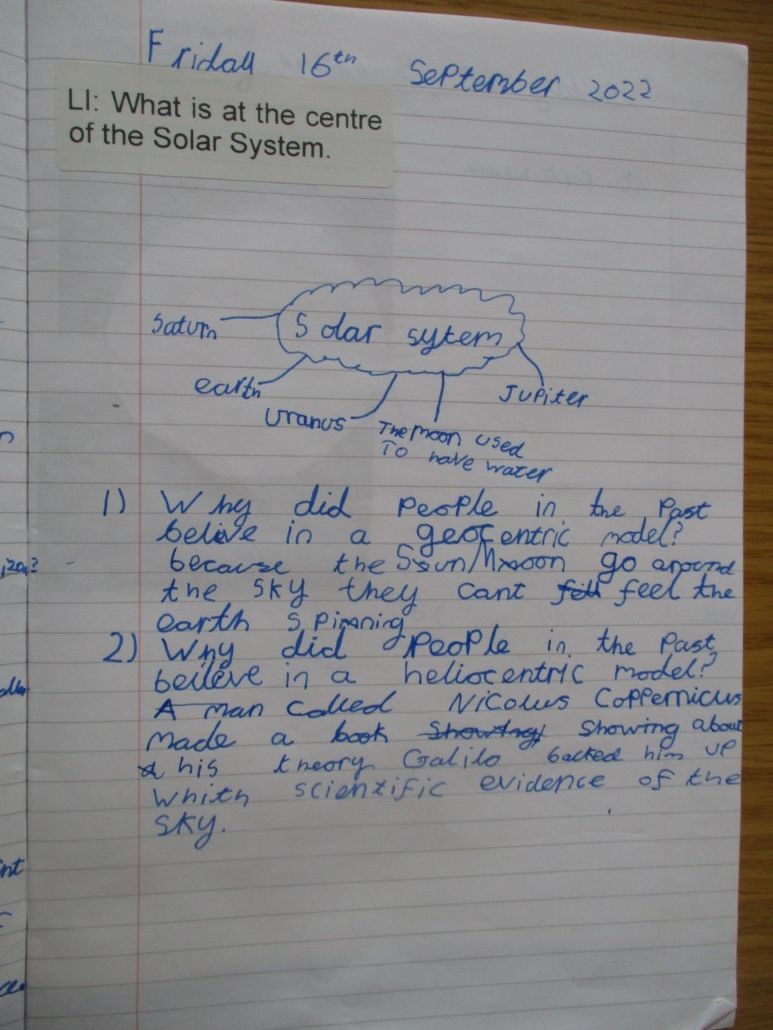 Friday 16th September 2022
LI: What is at the centre
of the Solar System.
Solar sytem
Saturn
earth
Uranus
The moon used
To have water
Jupiter
1) Why did people in the past
belive in a geocentric model?
because the Ssun/Mmoon go around
the sky they cant fell feel the
earth spinning
2) Why did people in the past
beileve in a heliocentric model?
A man called Nicolus Coppernicus
made a book Showing Showing about
his theory Galilo backed him up
whith scientific evidence of the
sky.